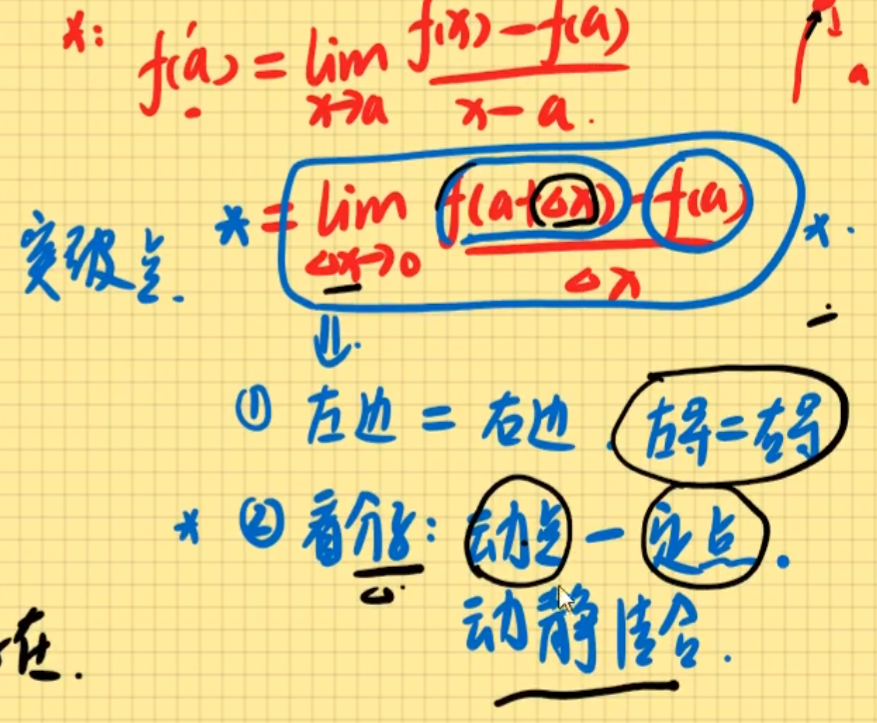 *: f'(a) = lim x→a (f(x) - f(a)) / (x - a).
突破点. * = lim Δx→0 (f(a+Δx) - f(a)) / Δx *.
⇓.
① 左边 = 右边. 左导=右导
* ② 看分子: 动点 - 定点.
动静结合.
在.
1
a